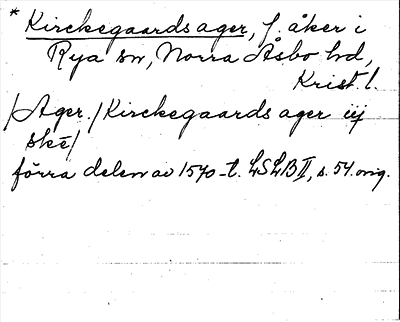 * Kirckegaardsager, f. åker i
Rya sn, Norra Åsbo hd,
Krist. l.
/Ager./Kirckegaards ager iij
skē/
förra delen av 1570-t. LSLB II, s. 54. orig.